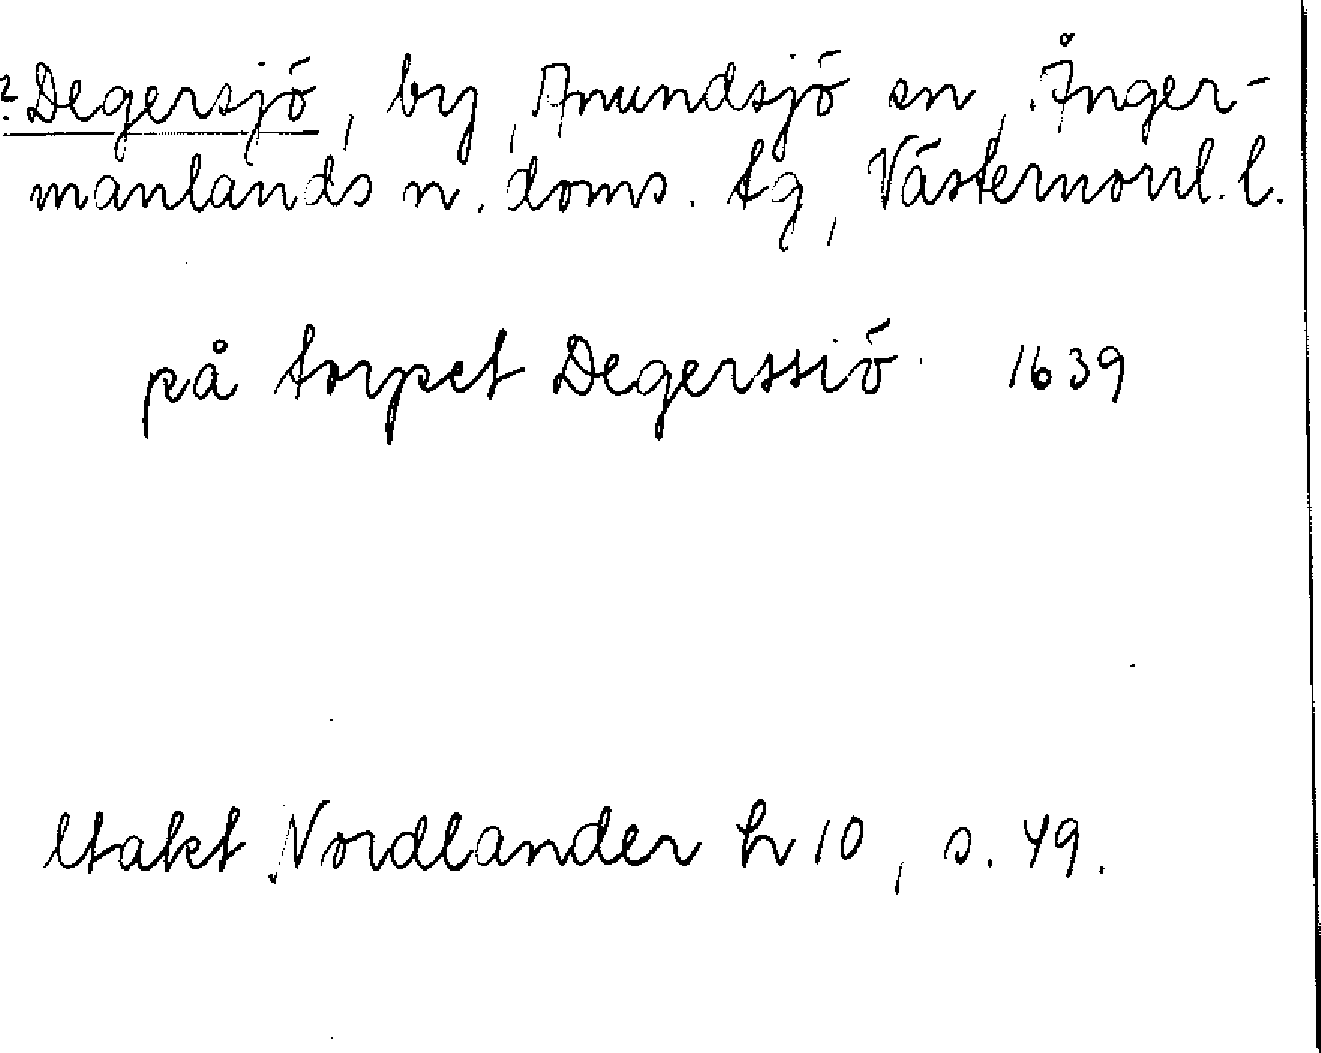 ? Degersjö, by, Anundsjö sn, Ånger-
manlands n. doms. tg, Västernorrl. l.
på torpet Degerssiö 1639
Utakt Nordlander h 10, s. 49.